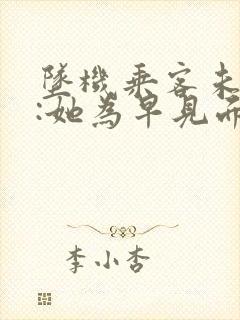 墜機乘客未
:她為早見而
李小杏